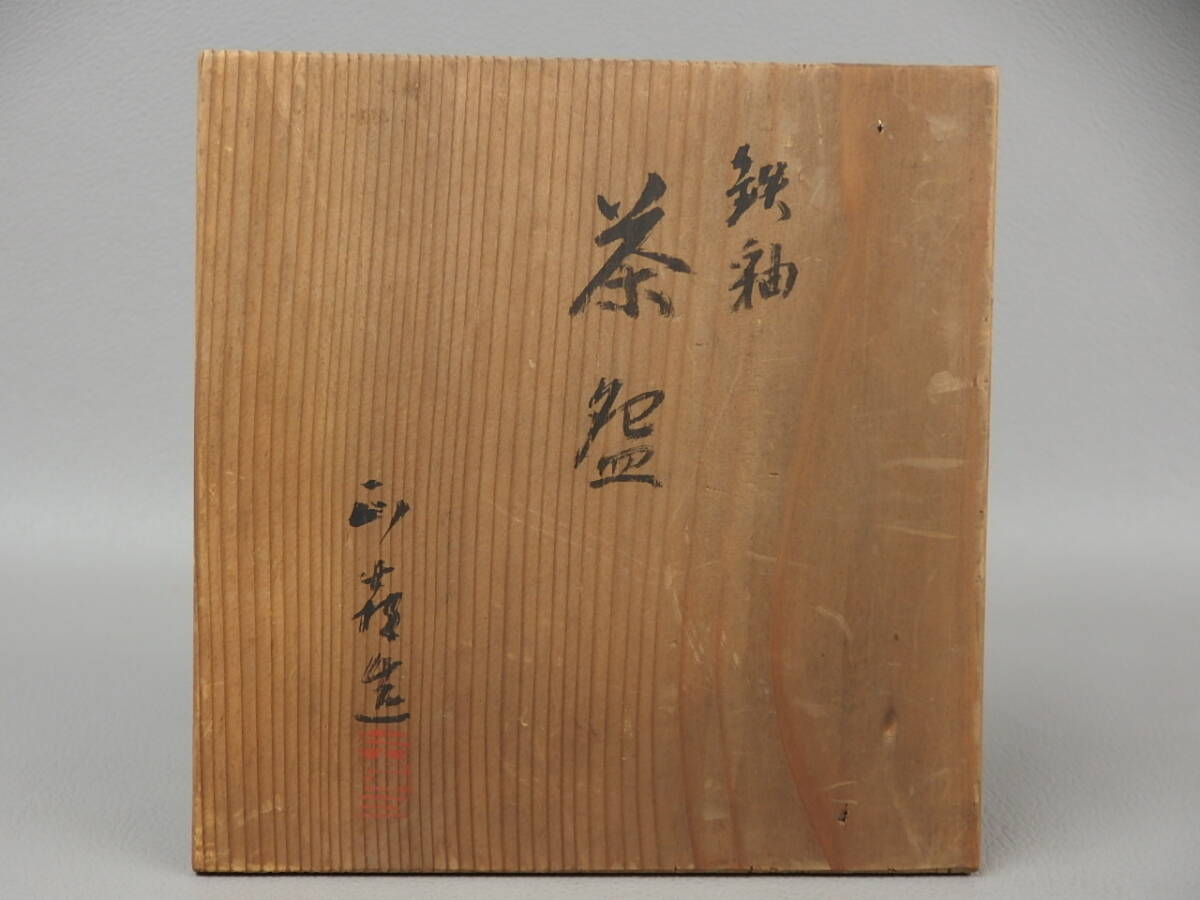 鉄釉
茶盌
造